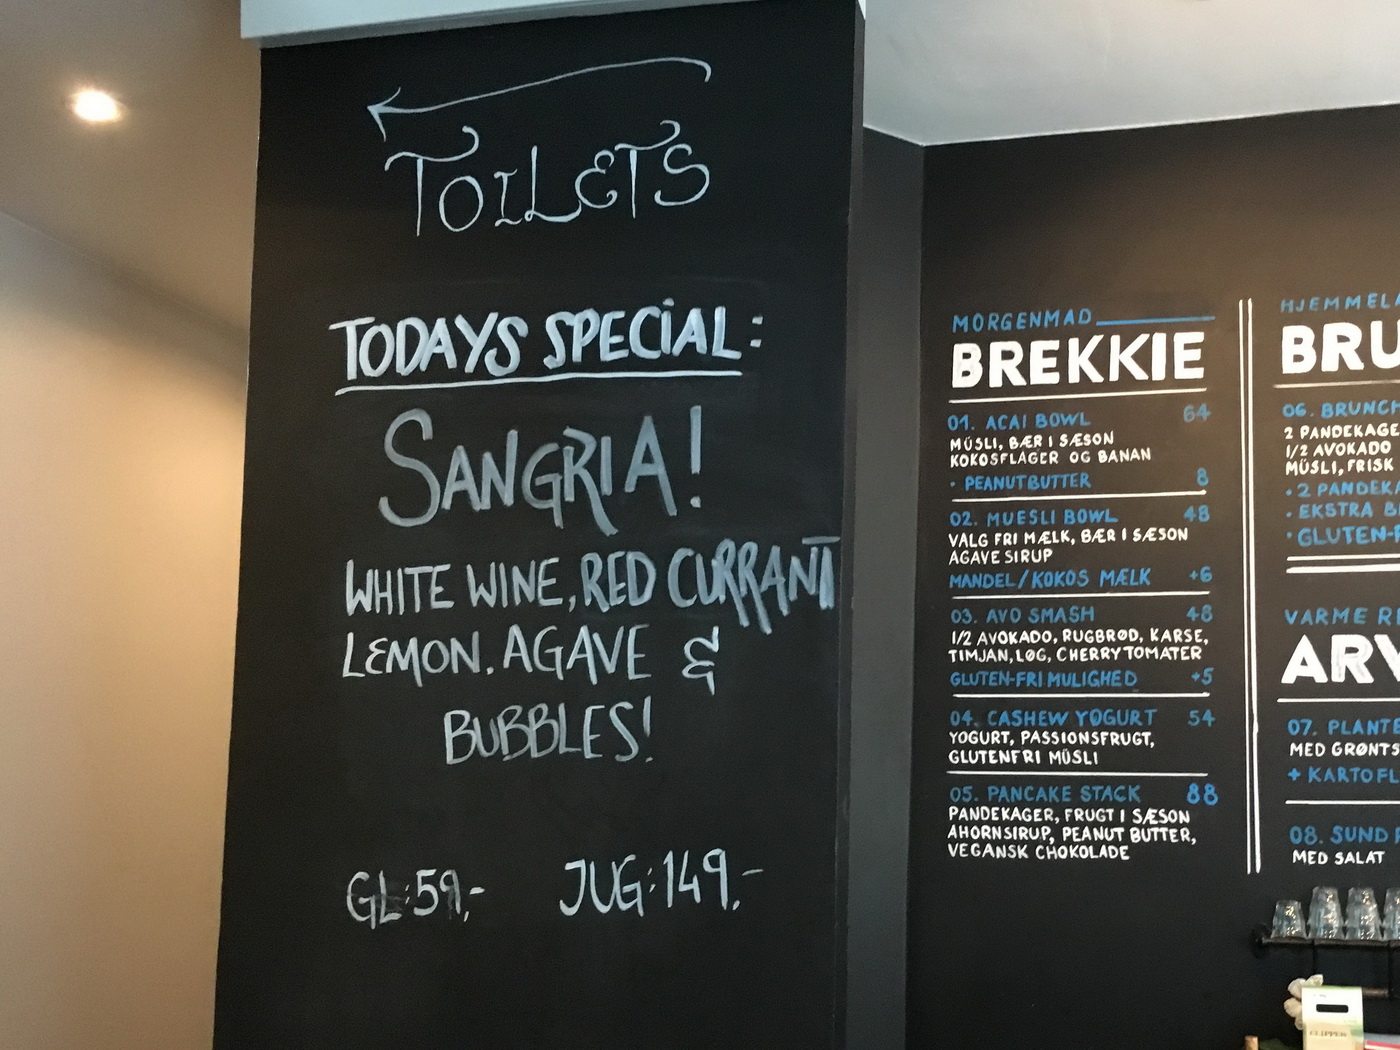 TOILETS
TODAYS SPECIAL:
SANGRIA!
WHITE WINE, RED CURRANT
LEMON. AGAVE &
BUBBLES!
GL: 59,-
JUG: 149,-
MORGENMAD
BREKKIE
01. ACAI BOWL 64
MÜSLI, BÆR I SÆSON
KOKOSFLAGER OG BANAN
• PEANUTBUTTER 8
02. MUESLI BOWL 48
VALG FRI MÆLK, BÆR I SÆSON
AGAVE SIRUP
MANDEL/KOKOS MÆLK +6
03. AVO SMASH 48
1/2 AVOKADO, RUGBRØD, KARSE,
TIMJAN, LØG, CHERRYTOMATER
GLUTEN-FRI MULIGHED +5
04. CASHEW YOGURT 54
YOGURT, PASSIONSFRUGT,
GLUTENFRI MÜSLI
05. PANCAKE STACK 88
PANDEKAGER, FRUGT I SÆSON
AHORNSIRUP, PEANUT BUTTER,
VEGANSK CHOKOLADE
HJEMMELA
BRU
06. BRUNCH
2 PANDEKAGE
1/2 AVOKADO
MÜSLI, FRISK
• 2 PANDEKA
• EKSTRA B
• GLUTEN-F
VARME R
ARV
07. PLANTE
MED GRØNTS
+ KARTOFL
08. SUND
MED SALAT
CLIPPER